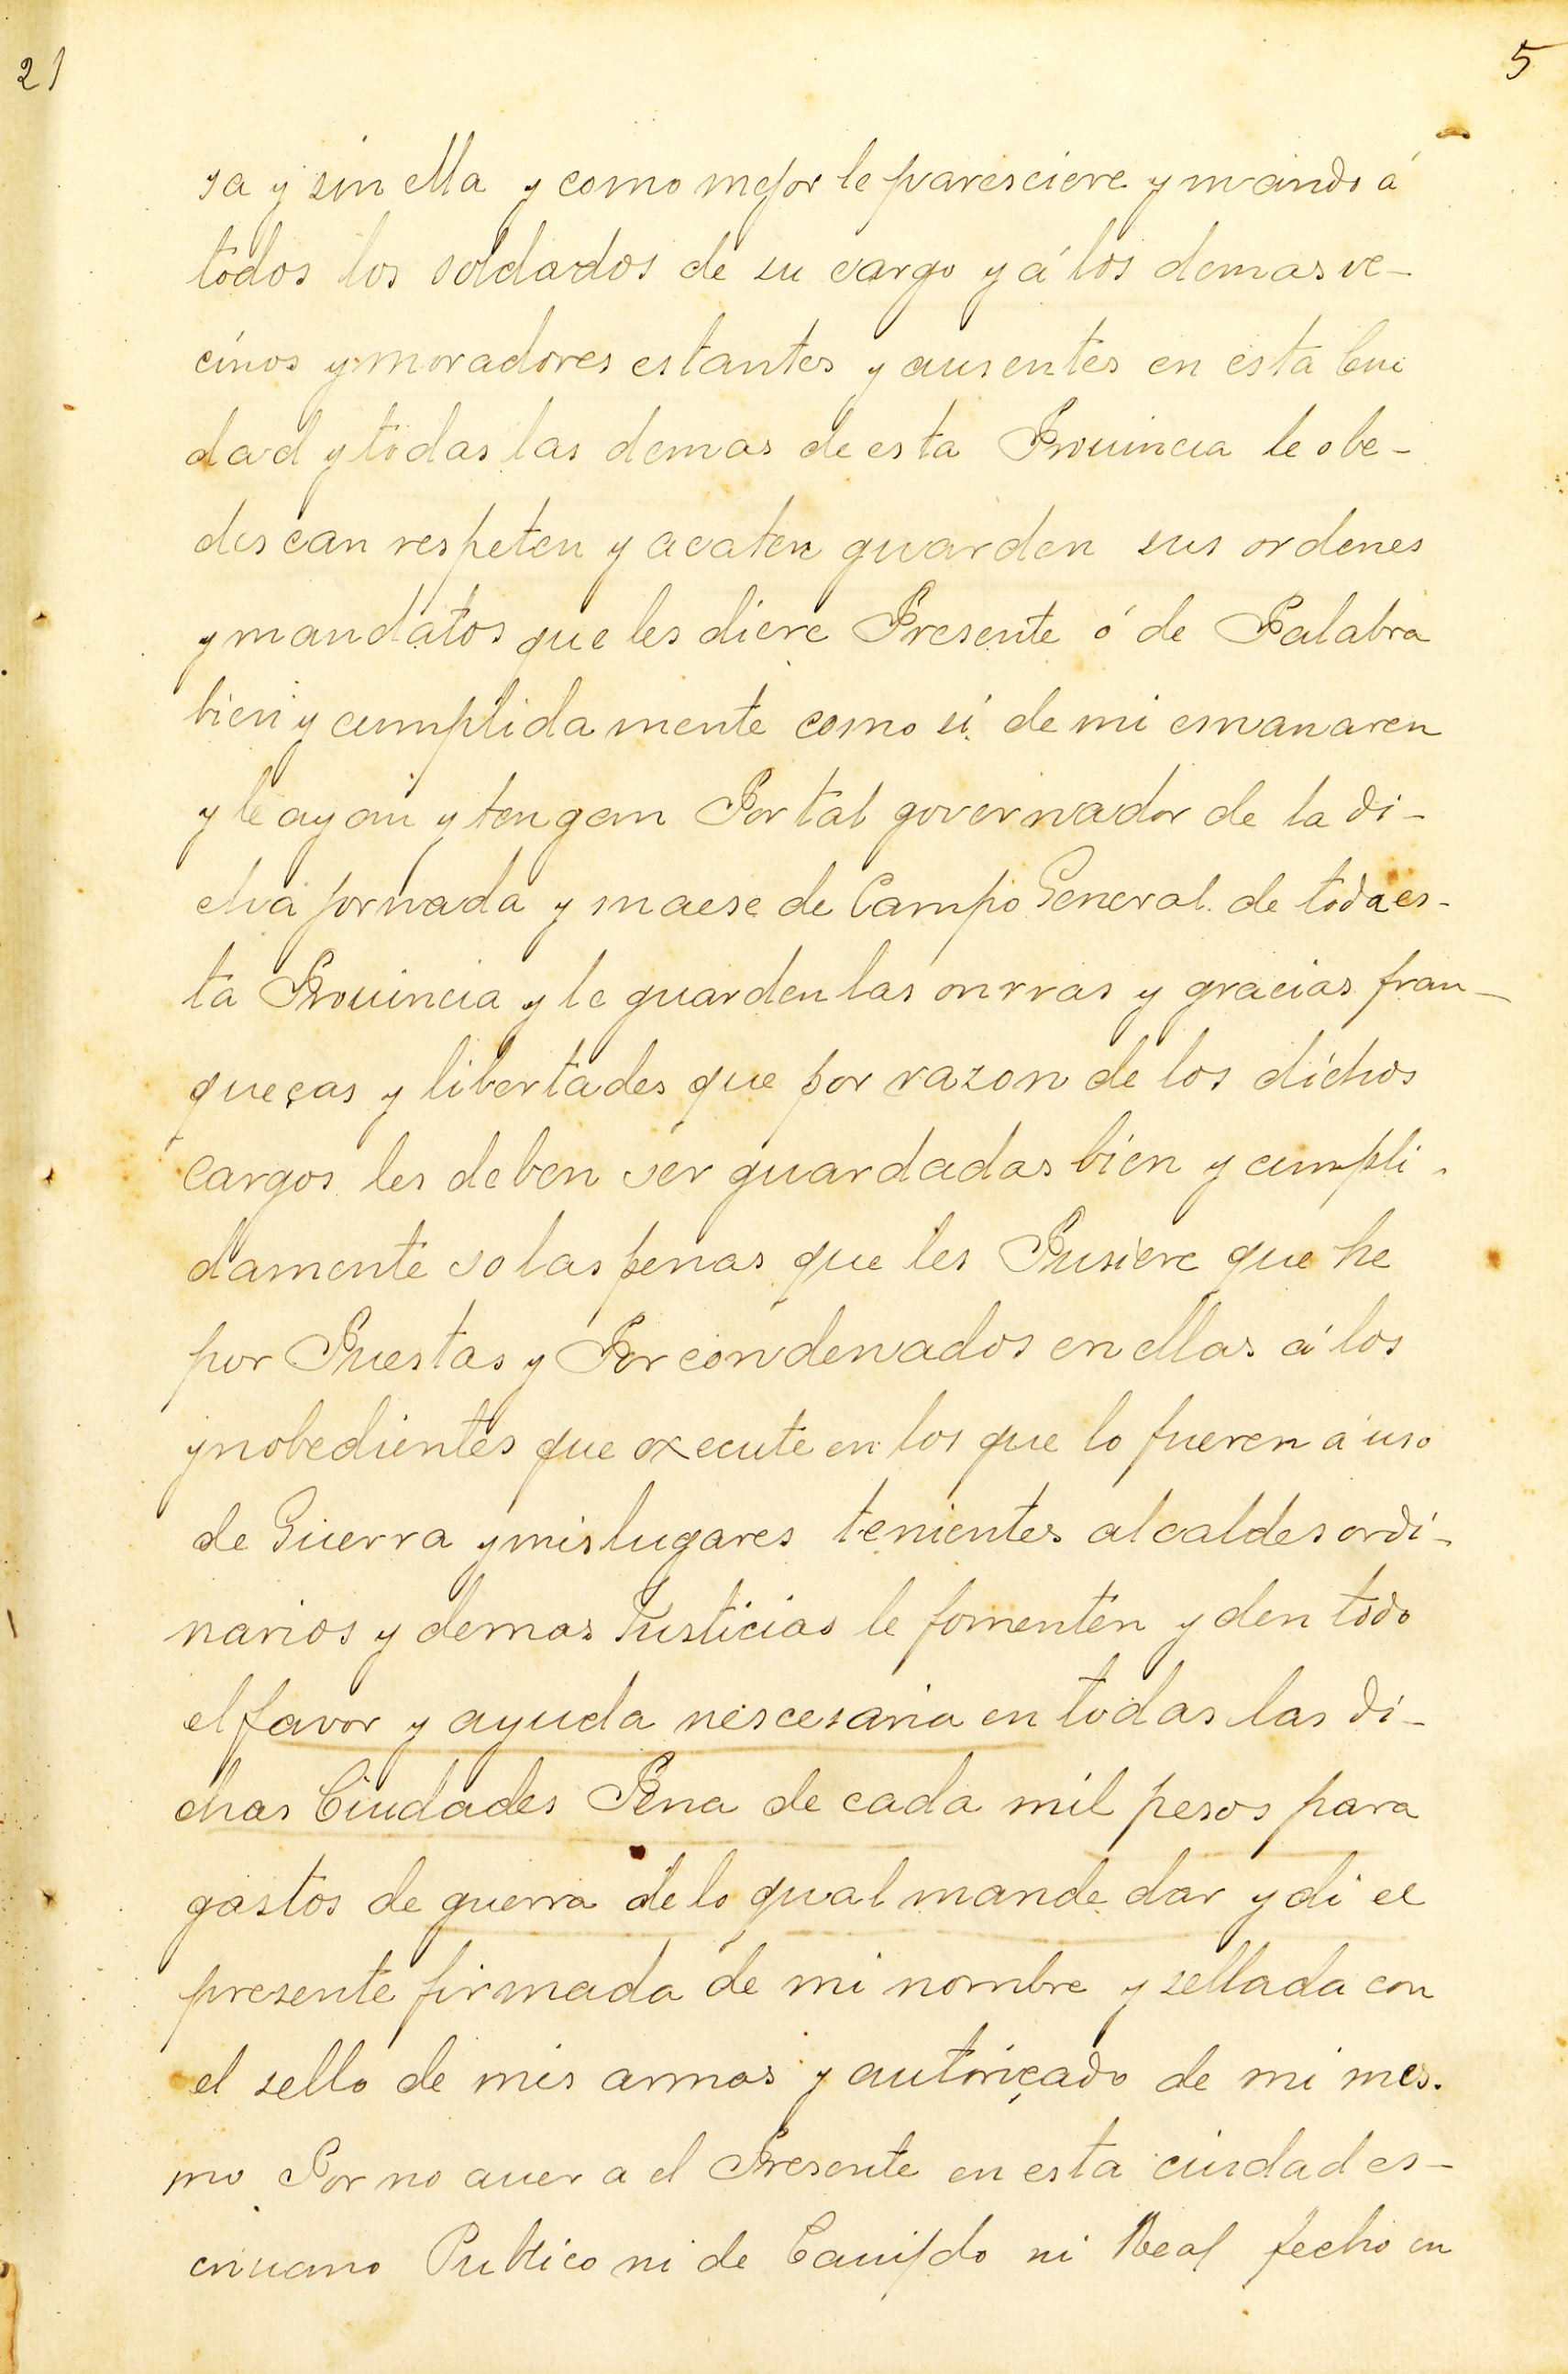 21
5
sa y sin ella y como mejor le paresciere y mando á
todos los soldados de su cargo y á los demas ve-
cinos y moradores estantes y ausentes en esta Ciu
dad y todas las demas de esta Prouincia le obe-
descan respeten y acaten guarden sus ordenes
y mandatos que les diere Presente ó de Palabra
bien y cumplida mente como si de mi emanaren
y le ayan y tengan Por tal governador de la di-
cha jornada y maese de Campo General de toda es-
ta Prouincia y le guarden las onrras y gracias fran-
queças y libertades que por razon de los dichos
cargos les deben ser guardadas bien y cumpli-
damente so las penas que les Pusiere que he
por Puestas y Por condenados en ellas á los
ynobedientes que execute en los que lo fueren á uso
de Guerra y mis lugares tenientes alcaldes ordi-
narios y demas Justicias le fomenten y den todo
el favor y ayuda nescesaria en todas las di-
chas Ciudades Pena de cada mil pesos para
gastos de guerra de lo qual mande dar y di el
presente firmada de mi nombre y sellada con
el sello de mis armas y autoriçado de mi mes-
mo Por no auer a el Presente en esta ciudad es-
criuano Publico ni de Cauildo ni Real fecho en